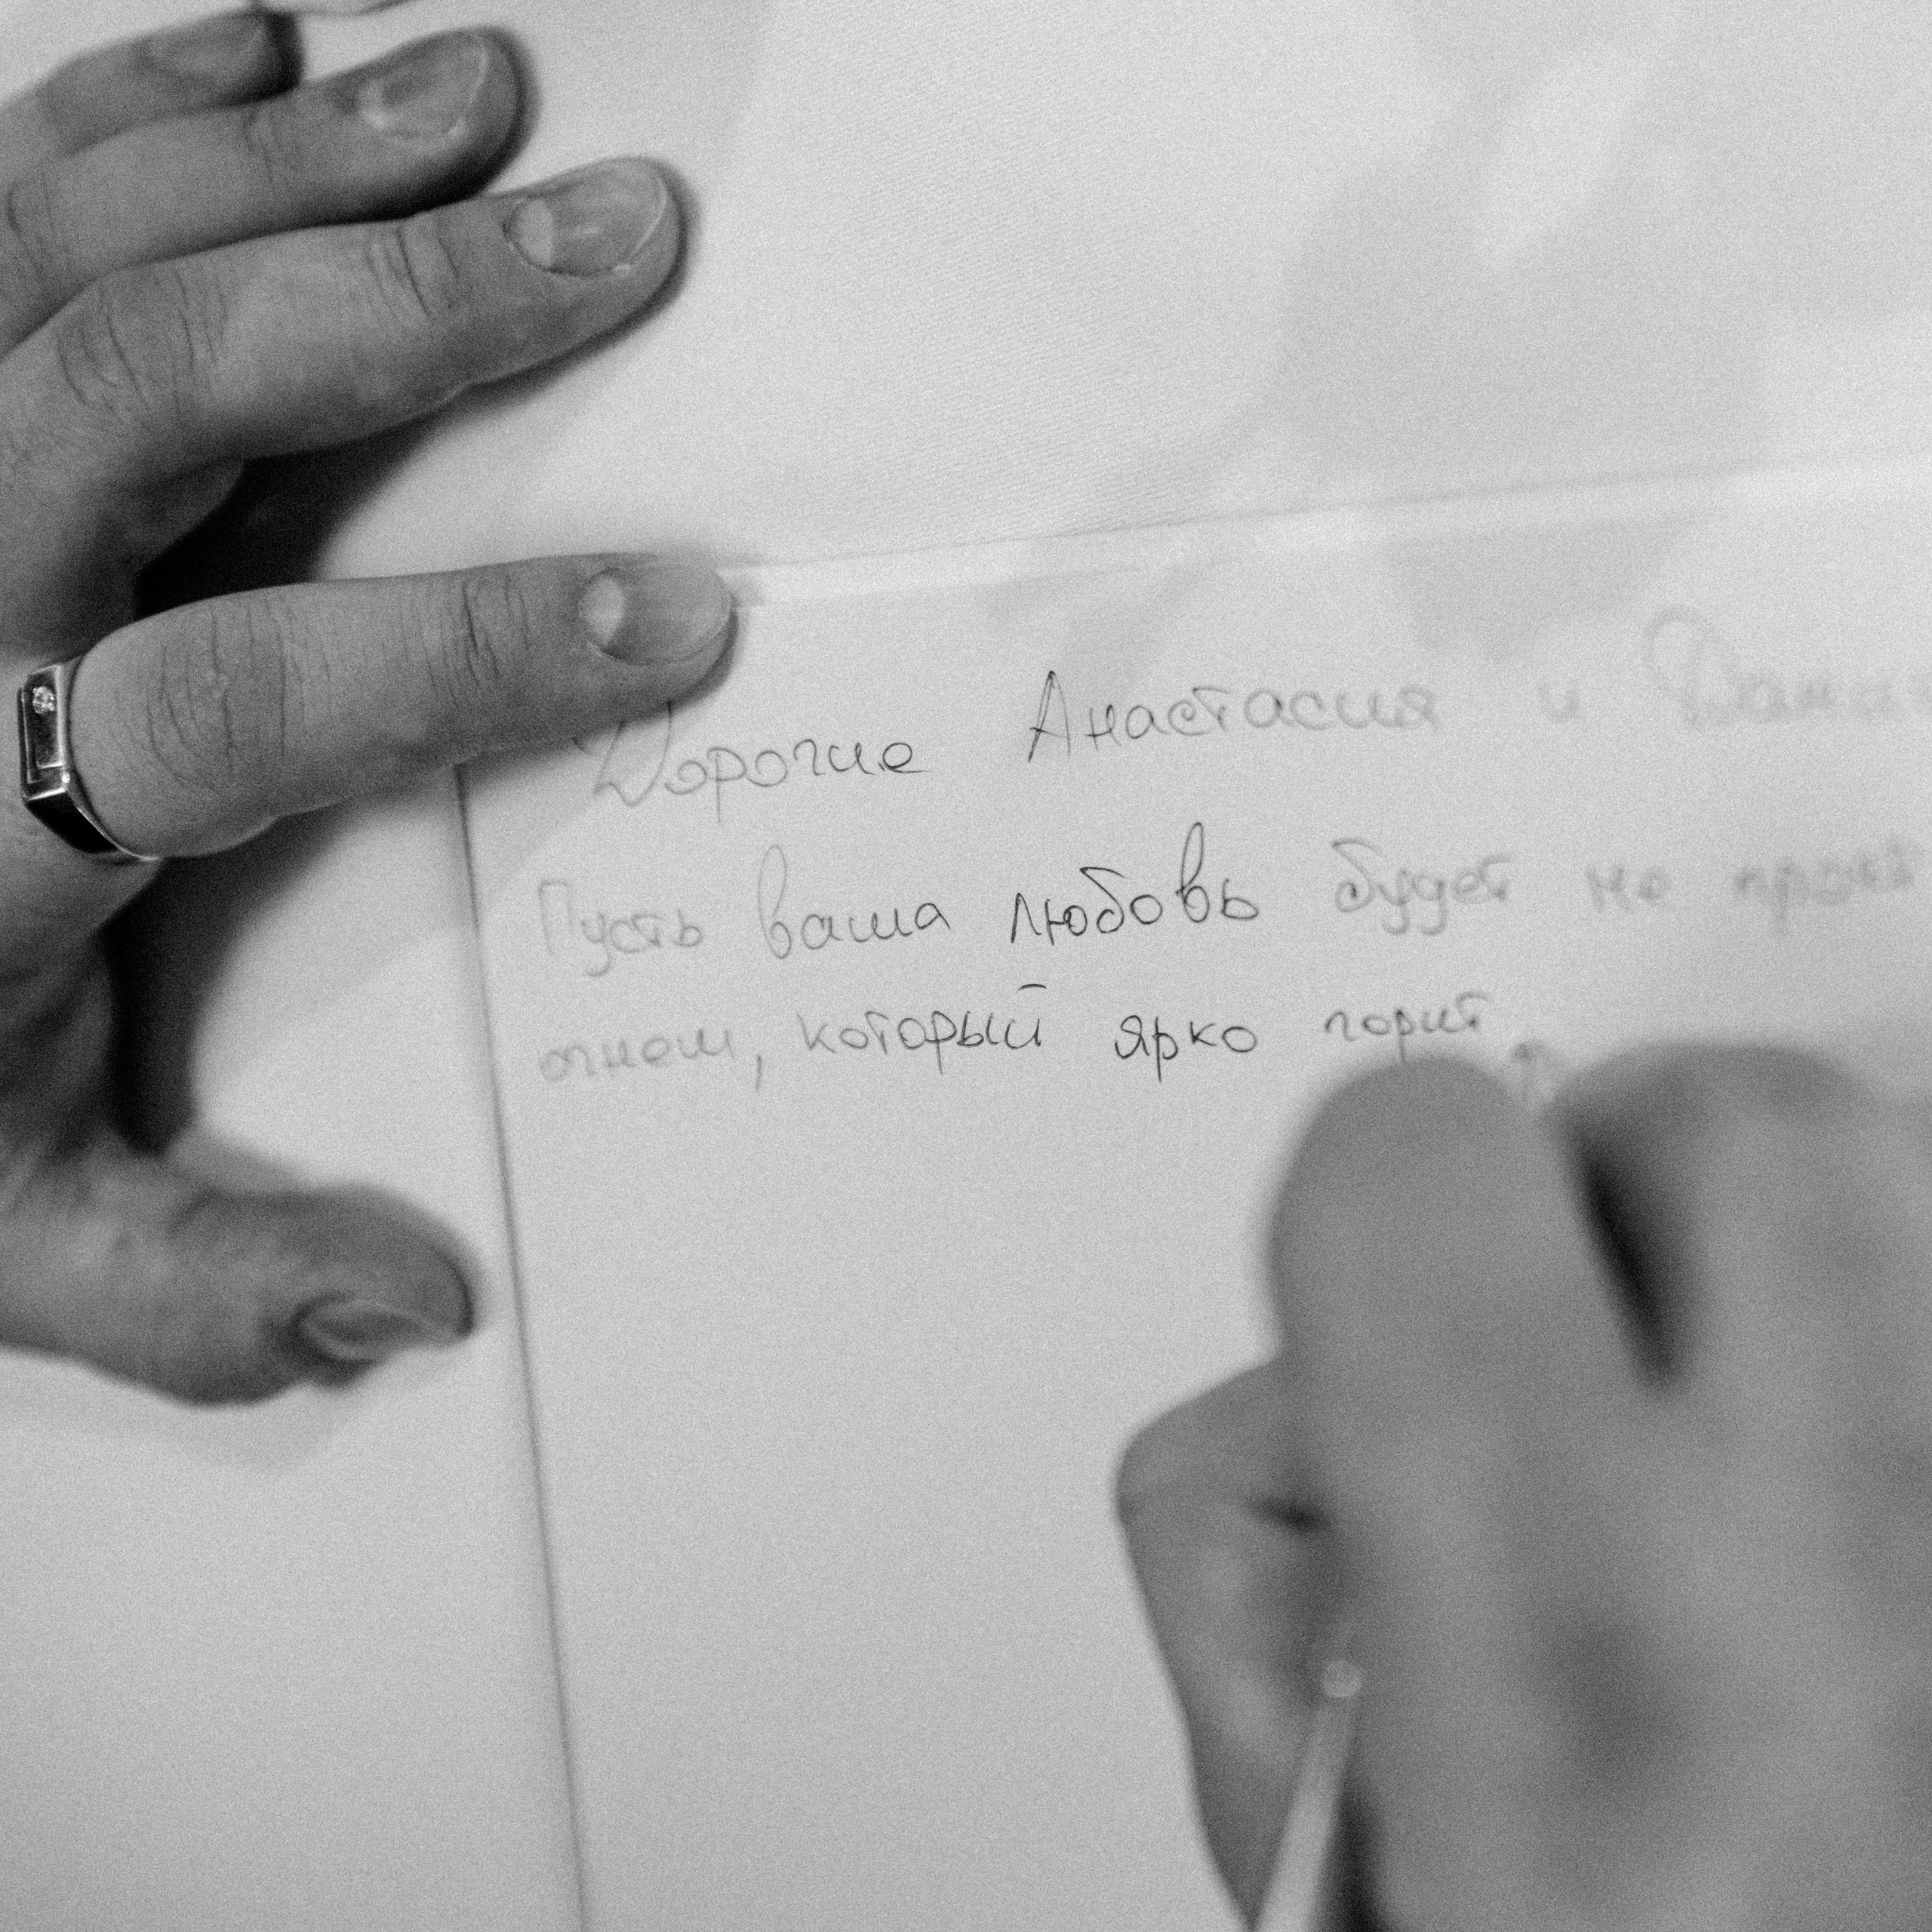 Дорогие Анастасия и
Пусть ваша любовь будет не
огнем, который ярко горит,